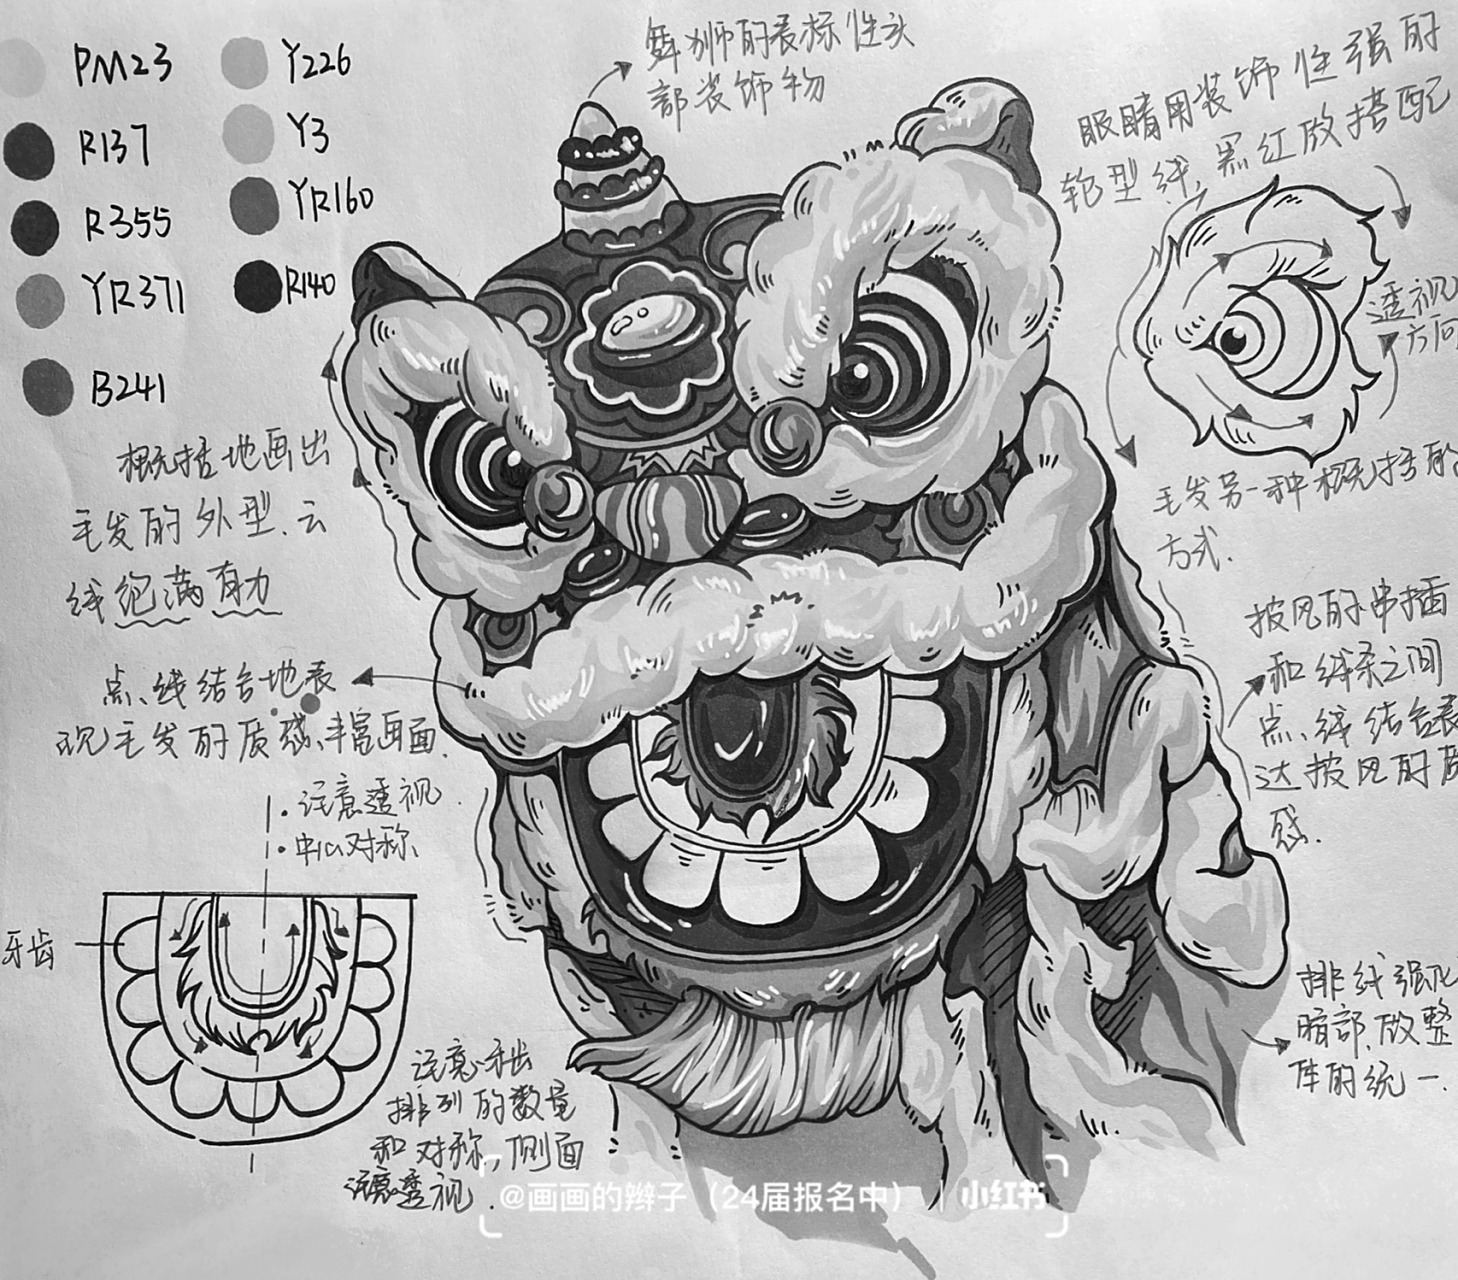 PM23
R137
R355
YR371
B241
Y226
Y3
YR160
R140
舞狮的表标性头
部装饰物
眼睛用装饰性强的
轮型线,黑红放搭配
透视
方向
毛发另一种概括的
方式.
概括地画出
毛发的外型.云
线饱满有力
点、线结合地表
现毛发的质感、丰富画面.
·注意透视.
·中心对称
牙齿
注意牙齿
排列的数量
和对称,侧面
注意透视.
披风的串插
和线条之间
点、线结合表
达披风的质
感.
排线强化
暗部.做整
体的统一.
@画画的辫子（24届报名中）｜小红书